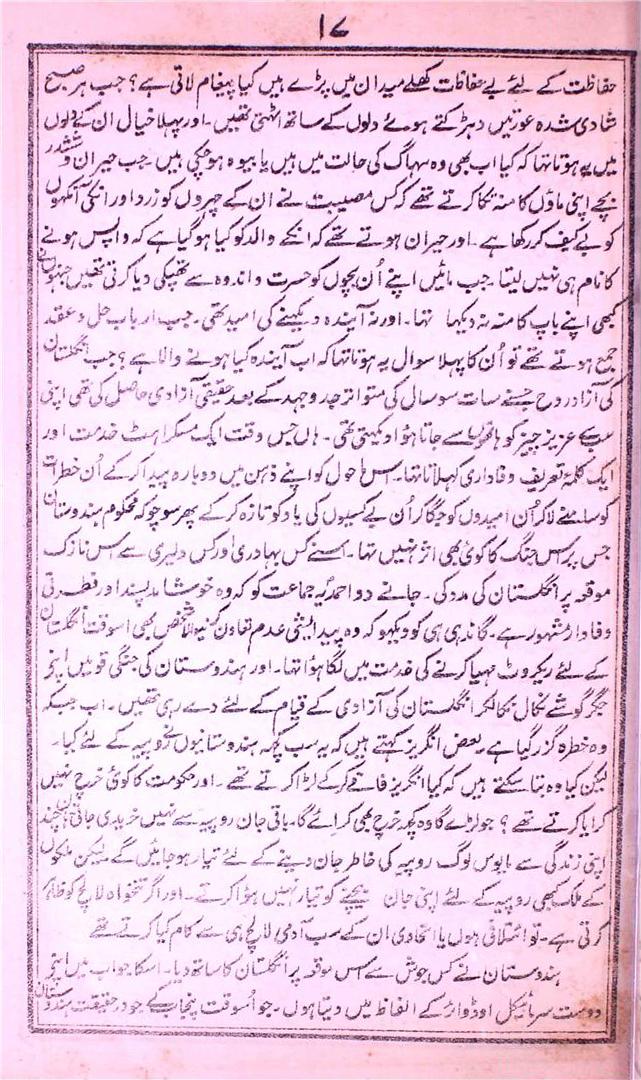 ۱۷
حفاظت کے لئے بے حفاظت کھلے میدان میں پڑے ہیں کیا پیغام لاتی ہے؟ جب ہر صبح
شادی شدہ عورتیں دہڑکتے ہوئے دلوں کے ساتھ اٹھتی تھیں۔ اور پہلا خیال ان کے دلوں
میں یہ ہوتا تہا کہ کیا اب بھی وہ سہاگ کی حالت میں ہیں یا بیوہ ہو چکی ہیں جب حیران و ششدر
بچے اپنی ماؤں کا منہ تکا کرتے تھے کہ کس مصیبت نے ان کے چہروں کو زرد اور انکی آنکہوں
کو بے کیف کر رکھا ہے۔ اور حیران ہوتے تھے کہ انکے والد کو کیا ہو گیا ہے کہ واپس ہونے
کا نام ہی نہیں لیتا۔ جب مائیں اپنے اُن بچوں کو حسرت و اندوہ سے تھپکی دیا کرتی تھیں جنہوں نے
کبھی اپنے باپ کا منہ نہ دیکہا تہا۔ اور نہ آیندہ دیکہنے کی امید تھی۔ جب ارباب حل و عقد
جمع ہوتے تھے تو اُن کا پہلا سوال یہ ہوتا تہا کہ اب آیندہ کیا ہونے والا ہے؟ جب انگلستان
کی آزاد روح جسنے سات سو سال کی متواتر جد و جہد کے بعد حقیقی آزادی حاصل کی تھی اپنی
سب سے عزیز چیز کو ہاتہوں سے جاتا ہوا دیکہتی تھی۔ ہاں جس وقت ایک مسکراہٹ خدمت اور
ایک کلمۂ تعریف وفاداری کہلاتا تہا۔ اس ماحول کو اپنے ذہن میں دوبارہ پیدا کر کے اُن خطرات
کو سامنے لا کر اُن امیدوں کو جگا کر اُن بے کسیوں کی یاد کو تازہ کر کے پھر سوچو کہ محکوم ہندوستان
جس پر اس جنگ کا کوئی بھی اثر نہیں تہا۔ اسنے کس بہادری اور کس دلیری سے اس نازک
موقعہ پر انگلستان کی مدد کی۔ جانے دو احمدیہ جماعت کو کہ وہ خوشامد پسند اور فطرتی
وفادار مشہور ہے۔ گاندہی ہی کو دیکہو کہ وہ پیدائشی عدم تعاون کنیوالا شخص بھی اسوقت انگلستان
کے لئے ریکروٹ مہیا کرنے کی خدمت میں لگا ہوا تہا۔ اور ہندوستان کی جنگی قومیں اپنے
جگر گوشے نکال نکالکر انگلستان کی آزادی کے قیام کے لئے دے رہی تھیں۔ اب جبکہ
وہ خطرہ گزر گیا ہے بعض انگریز کہتے ہیں کہ یہ سب کچہ ہندوستانیوں نے روپیہ کے لئے کیا۔
لیکن کیا وہ بتا سکتے ہیں کہ کیا انگریز فاقے کر کے لڑا کرتے تھے۔ اور حکومت کا کوئی خرچ نہیں
کرایا کرتے تھے؟ جو لڑے گا وہ کچہ خرچ بھی کرائے گا۔ باقی جان روپیہ سے نہیں خریدی جاتی چند
اپنی زندگی سے مایوس لوگ روپیہ کی خاطر جان دینے کے لئے تیار ہو جائیں گے لیکن ملکوں
کے ملک کبھی روپیہ کے لئے اپنی جان بیچنے کو تیار نہیں ہوا کرتے۔ اور اگر تنخواہ لالچ کو ظاہر
کرتی ہے۔ تو ائتلافی ہوں یا اتحادی ان کے سب آدمی لالچ ہی سے کام کیا کرتے تھے
ہندوستان نے کس جوش سے اس موقعہ پر انگلستان کا ساتھ دیا۔ اسکا جواب میں اپنے
دوست سر مائیکل اوڈوائر کے الفاظ میں دیتا ہوں۔ جو اُسوقت پنجاب کے جو در حقیقت ہندوستان